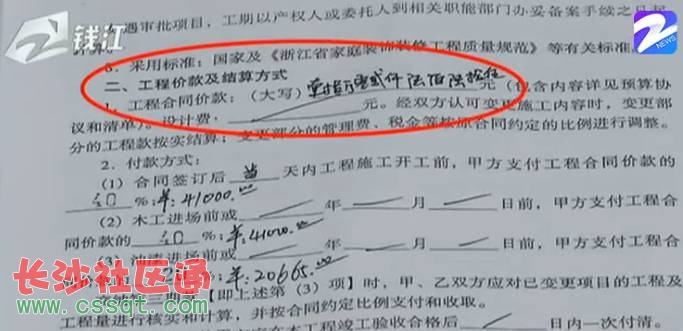 钱江
2
NEWS
遇审批项目，工期以产权人或委托人到相关职能部门办妥备案手续之日起
3．采用标准：国家及《浙江省家庭装饰装修工程质量规范》等有关标准。
二、工程价款及结算方式
1．工程合同价款：（大写） 元（包含内容详见预算协
议和清单）。设计费： 元。经双方认可变更施工内容时，变更部
分的工程款按实结算；变更部分的管理费、税金等按原合同约定的比例进行调整。
2．付款方式：
（1）合同签订后 当 天内工程施工开工前，甲方支付工程合同价款的
40 %；羊：41000.00
（2）木工进场前或 年 月 日前，甲方支付工程合
同价款的 40 %；羊：41000.00
（3）油漆进场前或 年 月 日前，甲方支付工程合
羊：20665.00
长沙社区通
www.cssqt.com
【即上述第（3）项】时，甲、乙双方应对已变更项目的工程及
工程量进行核实和计算，并按合同约定比例支付和收取。
本工程竣工验收合格后 日内一次付清。